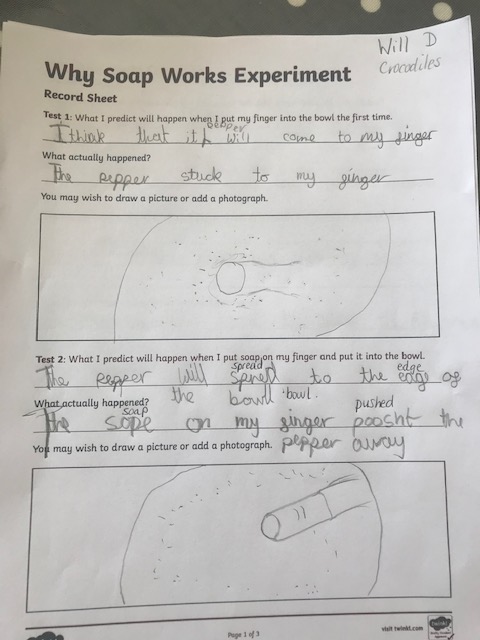 Will D
Crocodiles
Why Soap Works Experiment
Record Sheet
Test 1: What I predict will happen when I put my finger into the bowl the first time.
pepper
I think that it will come to my ginger
What actually happened?
The pepper stuck to my ginger
You may wish to draw a picture or add a photograph.
Test 2: What I predict will happen when I put soap on my finger and put it into the bowl.
spread edge
The pepper will spred to the edg og
the bowl bowl.
What actually happened?
soap pushed
The sope on my ginger poosht the
pepper away
You may wish to draw a picture or add a photograph.
Page 1 of 3
visit twinkl.com
twinkl